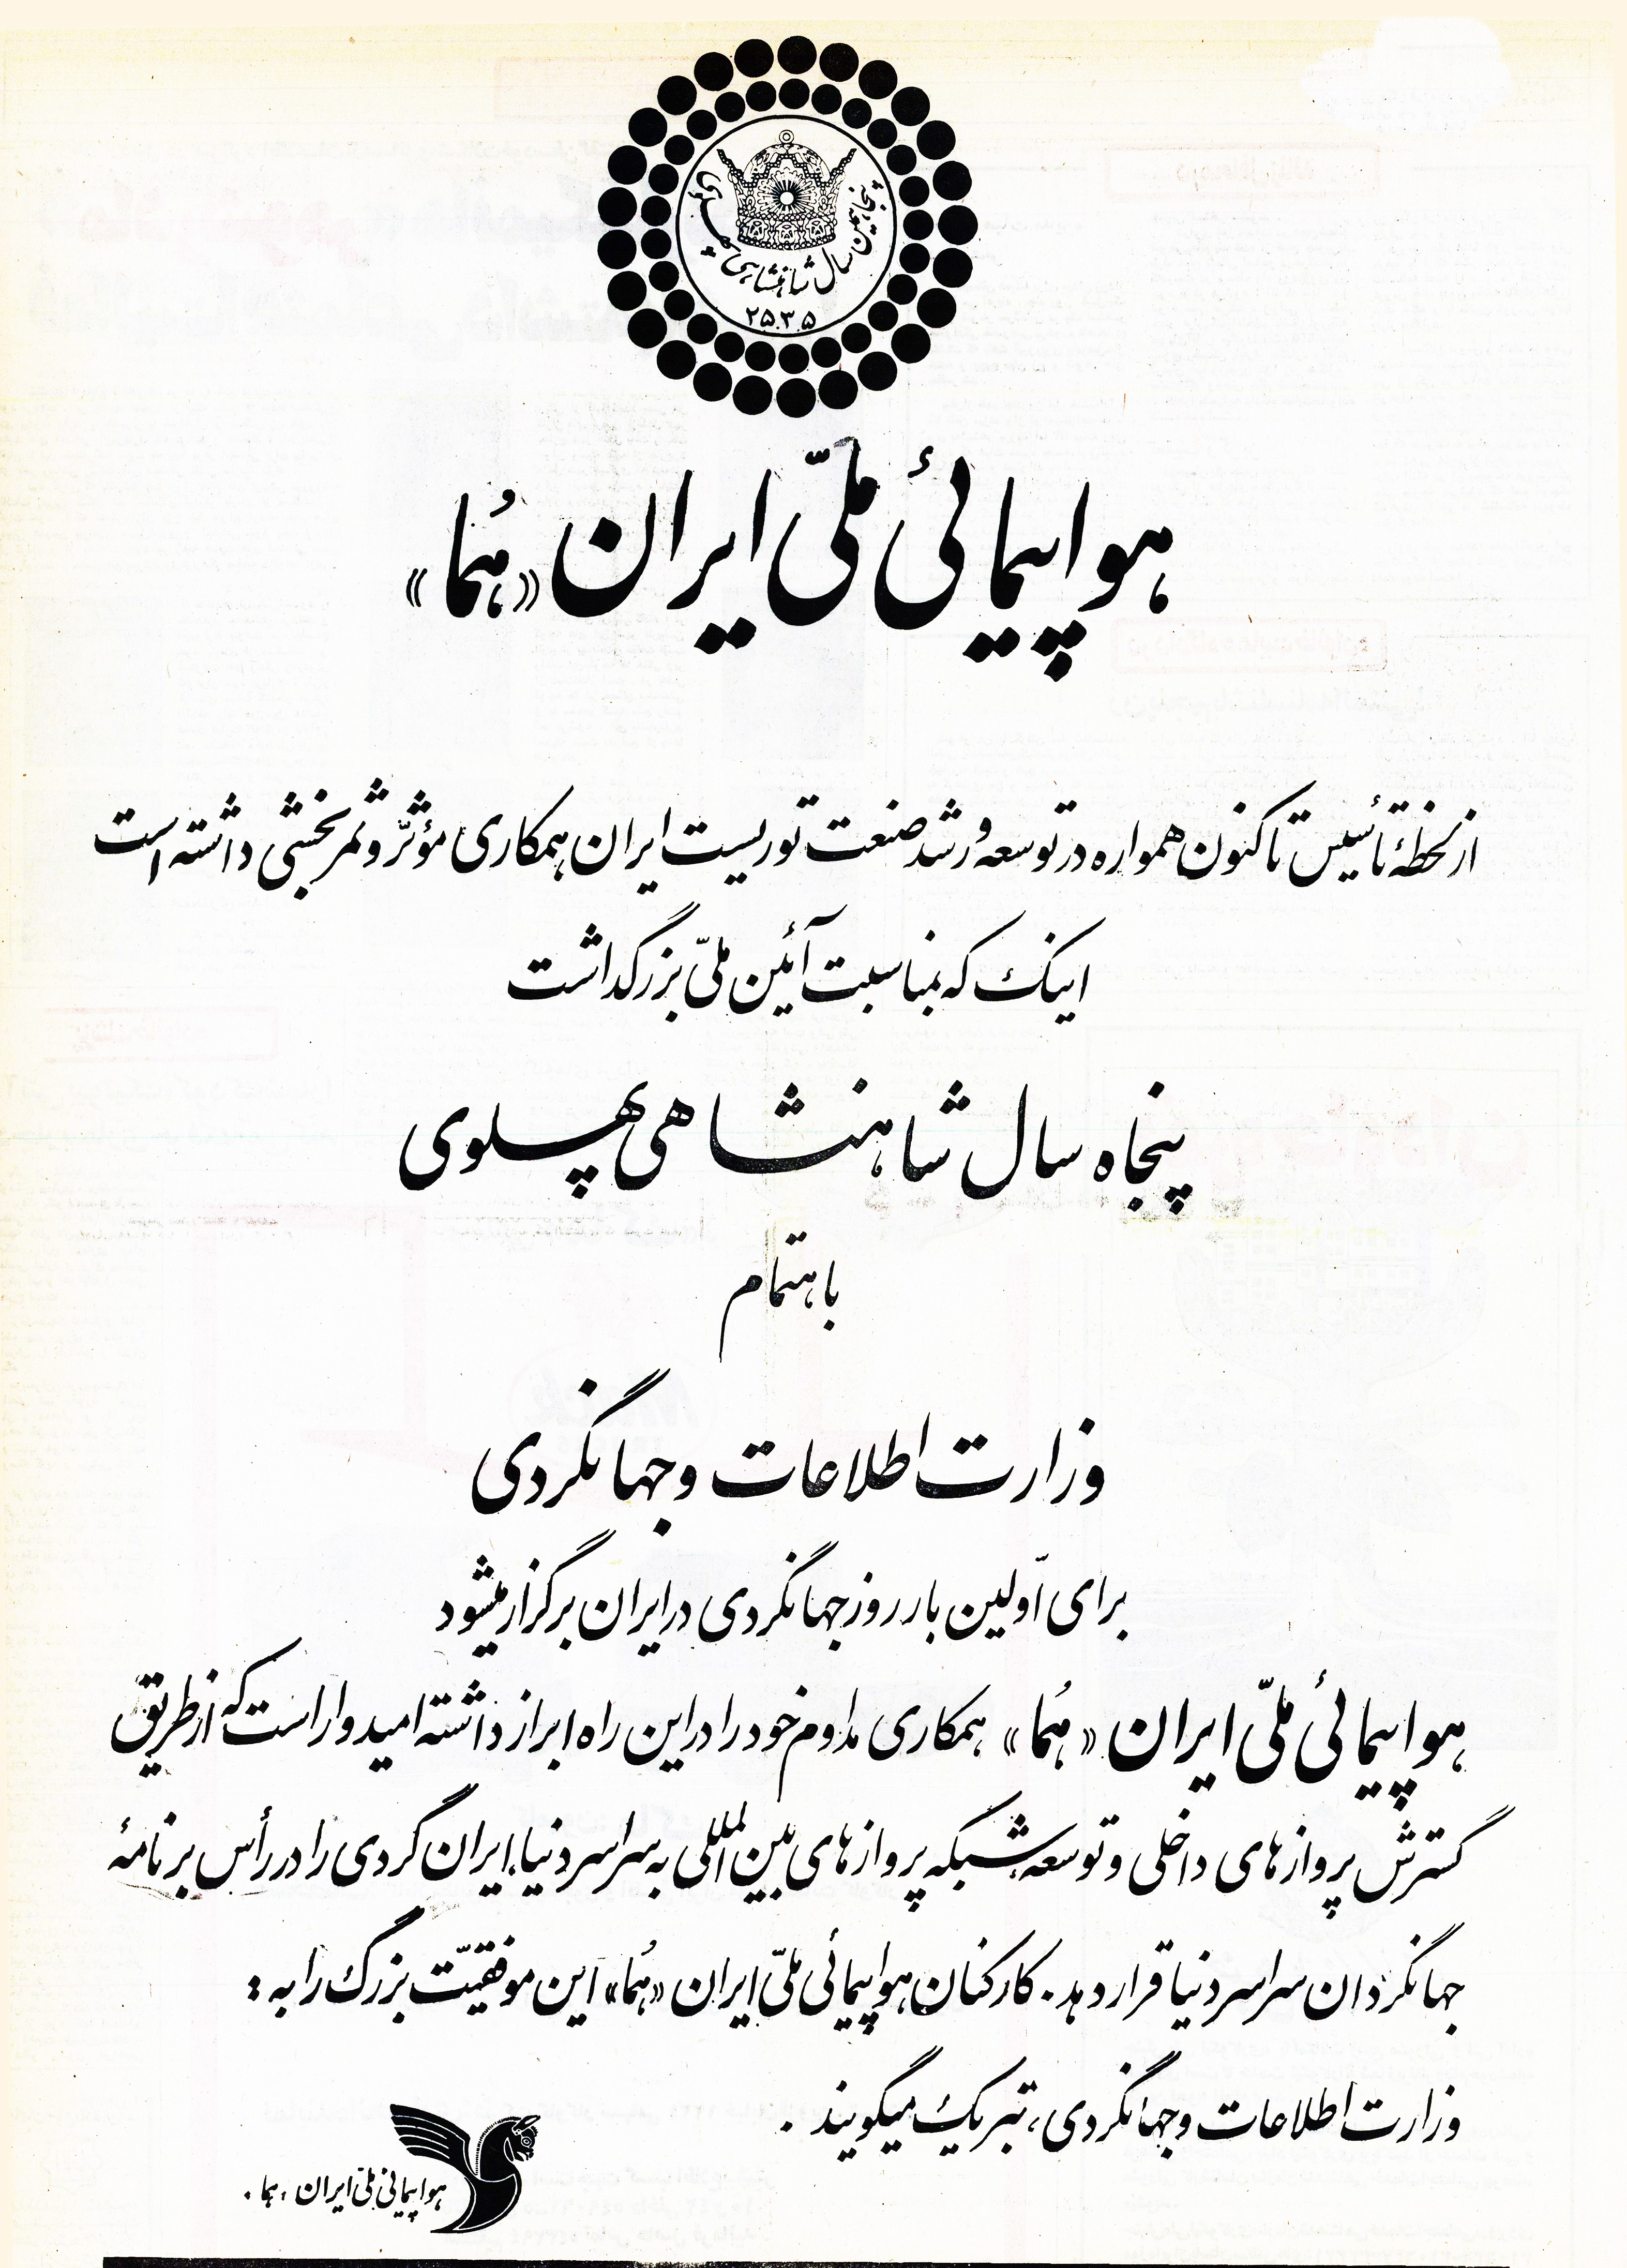 پنجاهمین سال شاهنشاهی پهلوی
۲۵۳۵
هواپیمائی ملّی ایران «هُما»
از لحظهٔ تأسیس تاکنون همواره در توسعه و رشد صنعت توریست ایران همکاری مؤثّر و ثمربخشی داشته است
اینک که بمناسبت آئین ملّی بزرگداشت
پنجاه سال شاهنشاهی پهلوی
باهتمام
وزارت اطلاعات و جهانگردی
برای اوّلین بار روز جهانگردی در ایران برگزار میشود
هواپیمائی ملّی ایران «هُما» همکاری مداوم خود را در این راه ابراز داشته امیدوار است که از طریق
گسترش پروازهای داخلی و توسعه شبکه پروازهای بین المللی به سراسر دنیا، ایران گردی را در رأس برنامهٔ
جهانگردان سراسر دنیا قرار دهد. کارکنان هواپیمائی ملّی ایران «هُما» این موفقیّت بزرگ را به :
وزارت اطلاعات و جهانگردی، تبریک میگویند .
هواپیمائی ملّی ایران ، هما .